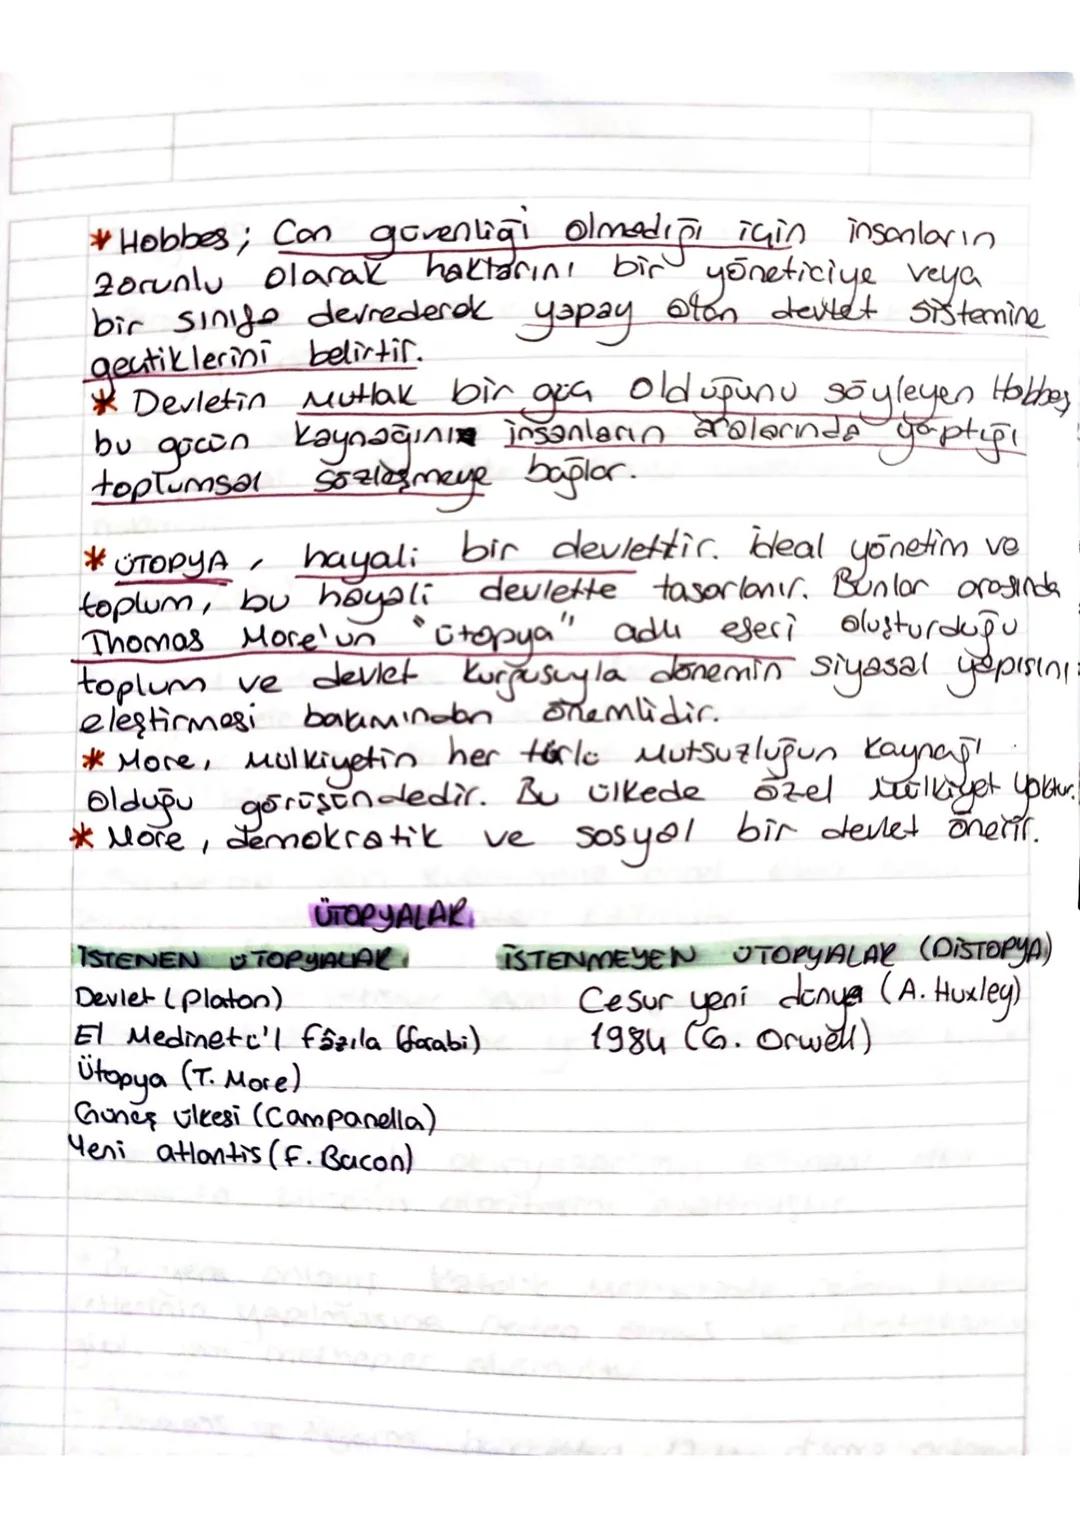 * Hobbes; Can güvenliği olmadığı için insanların
zorunlu olarak haklarını bir yöneticiye veya
bir sınıfa devrederek yapay olan devlet sistemine
geçtiklerini belirtir.
* Devletin mutlak bir güç olduğunu söyleyen Hobbes,
bu gücün kaynağını insanların aralarında yaptığı
toplumsal sözleşmeye bağlar.
* ÜTOPYA, hayali bir devlettir. İdeal yönetim ve
toplum, bu hayali devlette tasarlanır. Bunlar arasında
Thomas More'un "ütopya" adlı eseri oluşturduğu
toplum ve devlet kurgusuyla dönemin siyasal yapısını
eleştirmesi bakımından önemlidir.
* More, mülkiyetin her türlü mutsuzluğun kaynağı
olduğu görüşündedir. Bu ülkede özel mülkiyet yoktur.
* More, demokratik ve sosyal bir devlet önerir.
ÜTOPYALAR
İSTENEN ÜTOPYALAR İSTENMEYEN ÜTOPYALAR (DİSTOPYA)
Devlet (Platon) Cesur yeni dünya (A. Huxley)
El Medinetü'l fâzıla (farabi) 1984 (G. Orwell)
Ütopya (T. More)
Güneş ülkesi (Campanella)
Yeni atlantis (F. Bacon)